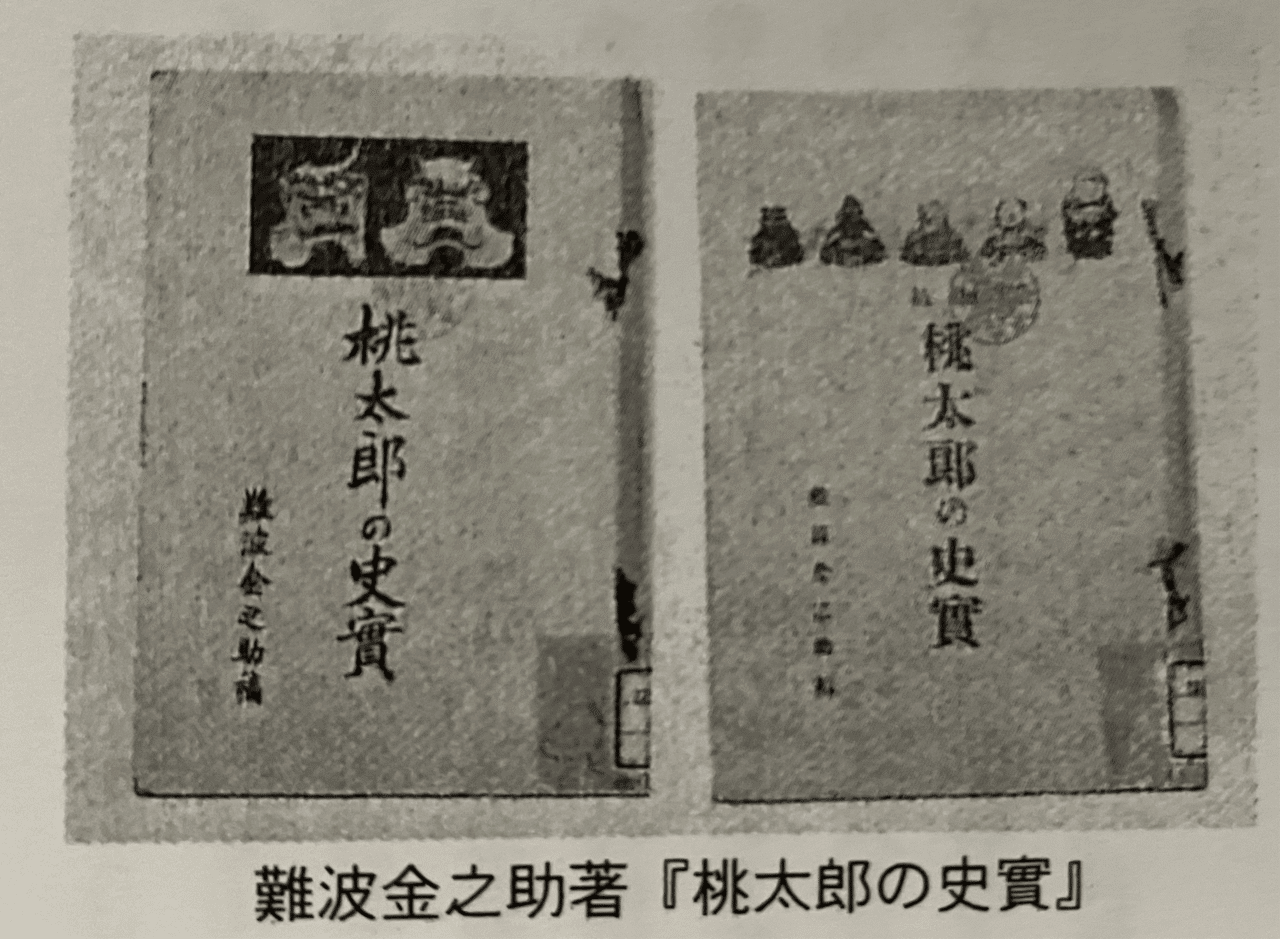 桃太郎の史實
難波金之助稿
桃太郎の史實
難波金之助著『桃太郎の史實』